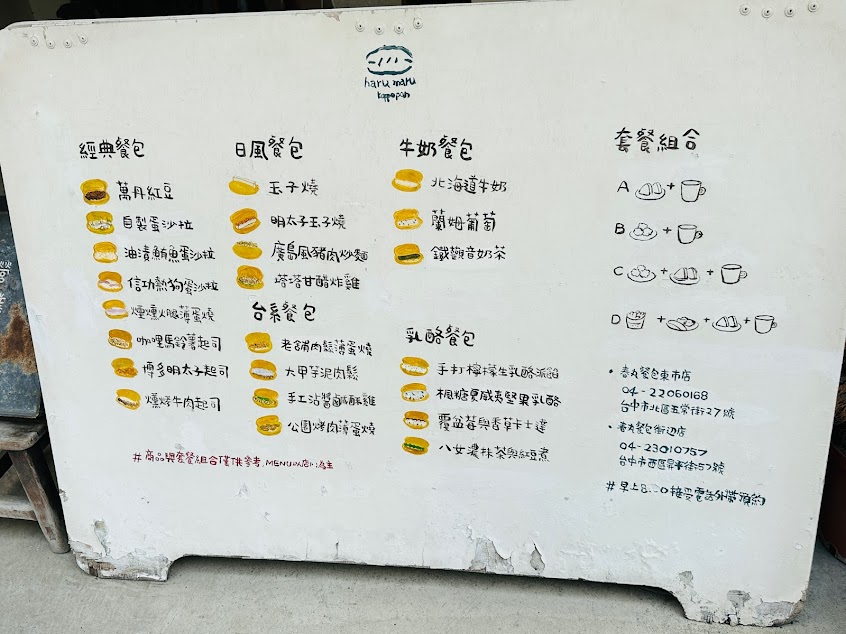 haru maru
koppepan
經典餐包
萬丹紅豆
自製蛋沙拉
油漬鮪魚蛋沙拉
信功熱狗蛋沙拉
煙燻火腿薄蛋燒
咖哩馬鈴薯起司
博多明太子起司
燻烤牛肉起司
日風餐包
玉子燒
明太子玉子燒
廣島風豬肉炒麵
塔塔甘醋炸雞
台系餐包
老舖肉鬆薄蛋燒
大甲芋泥肉鬆
手工沾醬鹹酥雞
公園烤肉薄蛋燒
牛奶餐包
北海道牛奶
蘭姆葡萄
鐵觀音奶茶
乳酪餐包
手打檸檬生乳酪派餡
楓糖夏威夷堅果乳酪
覆盆莓與香草卡士達
八女濃抹茶與紅豆煮
套餐組合
A + 
B + 
C + + 
D + + + 
• 春丸餐包東市店
04-22060168
台中市北區五常街27號
• 春丸餐包街辺店
04-23010757
台中市西區昇平街57號
#早上8:00接受電話外帶預約
#商品與套餐組合僅供參考,MENU以店內為主